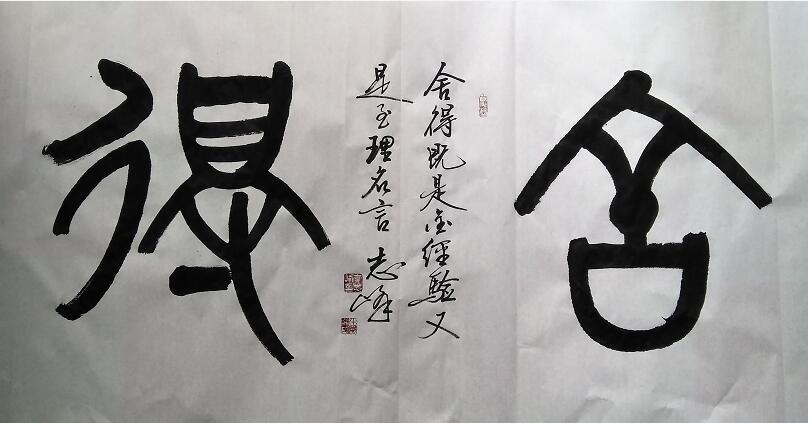 舍
舍得既是經驗又
是至理名言 志峰
得